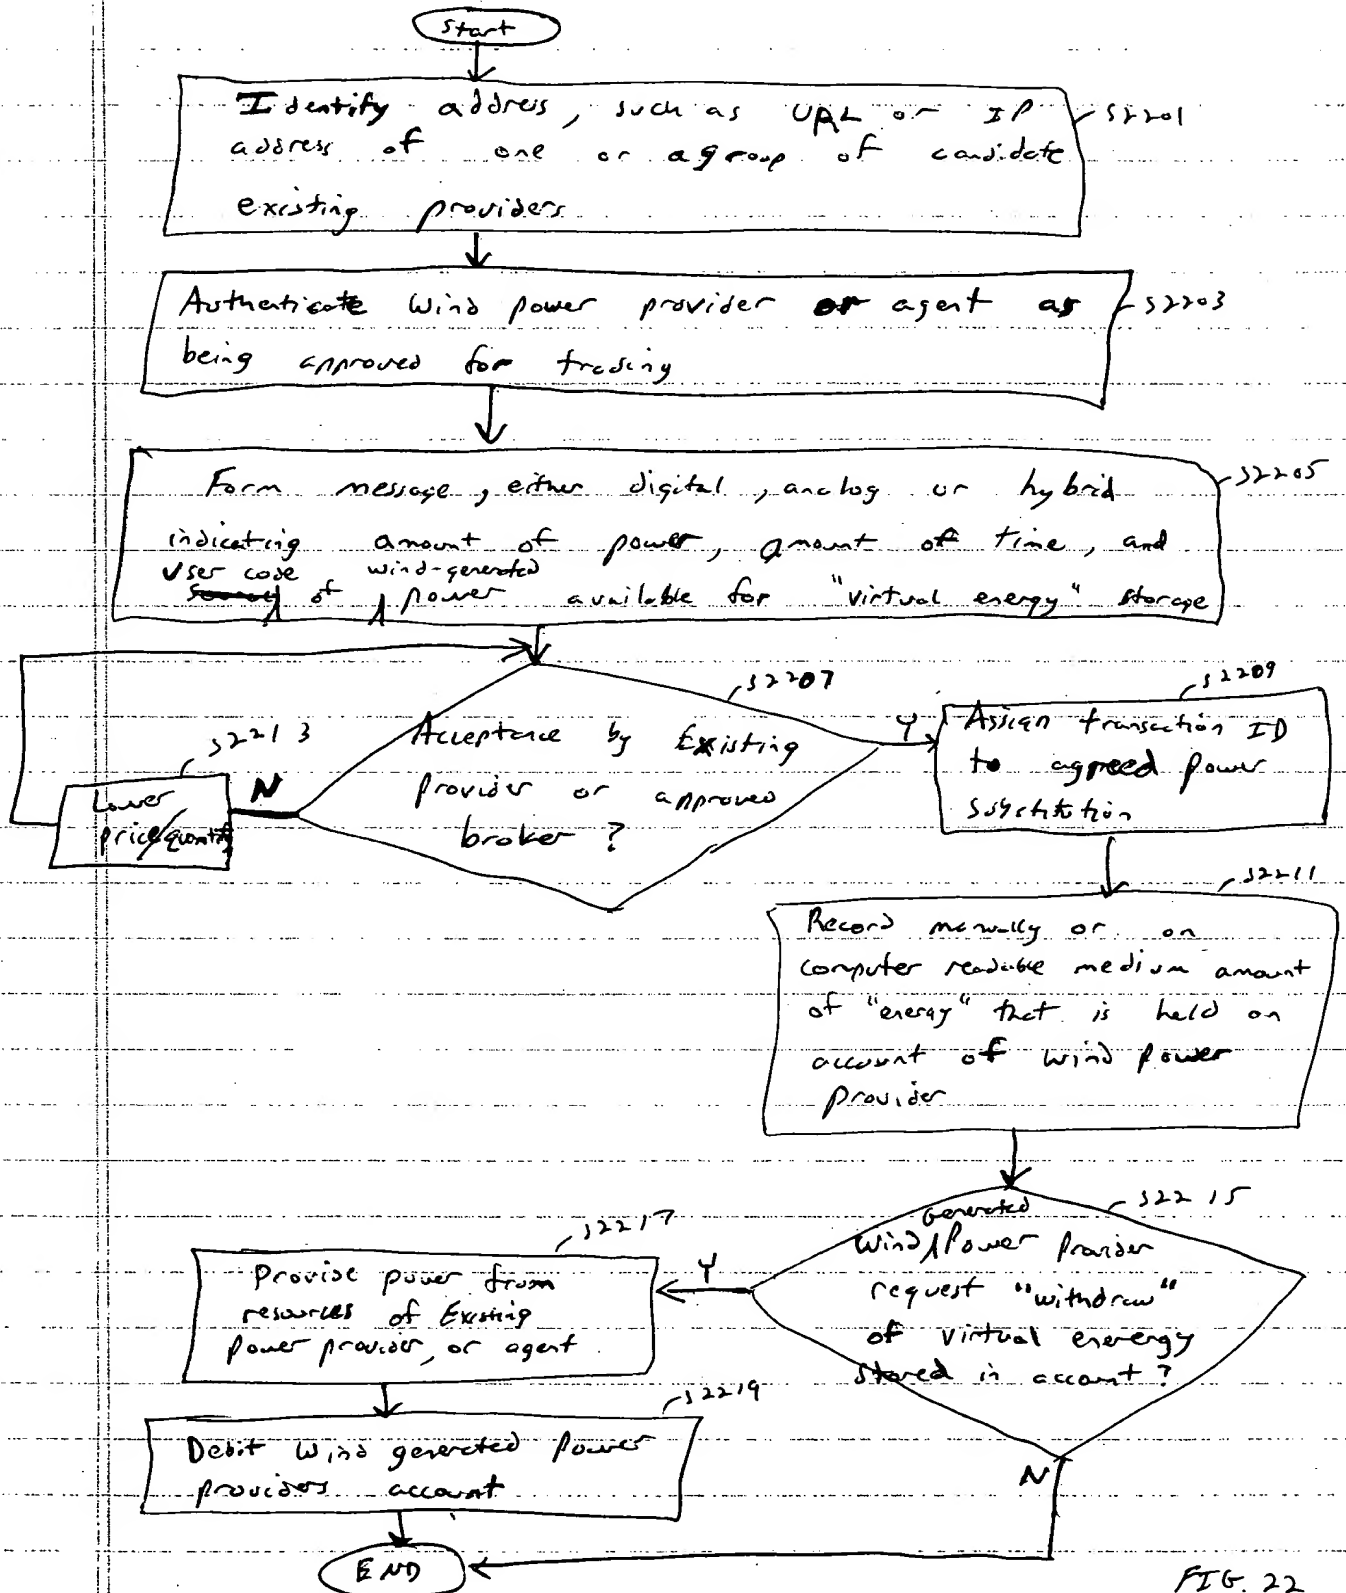 Start
Identify address, such as URL or IP
address of one or a group of candidate
existing providers
S2201
Authenticate Wind power provider or agent as
being approved for trading
S2203
Form message, either digital, analog or hybrid
indicating amount of power, amount of time, and
User code wind-generated
of power available for "virtual energy" storage
S2205
Acceptance by Existing
provider or approved
broker ?
S2207
Y
N
Assign transaction ID
to agreed power
substitution
S2209
Lower
price/quantity
S2213
Record manually or on
computer readable medium amount
of "energy" that is held on
account of wind power
provider
S2211
generated
Wind Power Provider
request "withdraw"
of virtual enenergy
stored in account ?
S2215
Y
N
Provide power from
resources of Existing
power provider, or agent
S2217
Debit Wind generated Power
providers account
S2219
END
FIG. 22